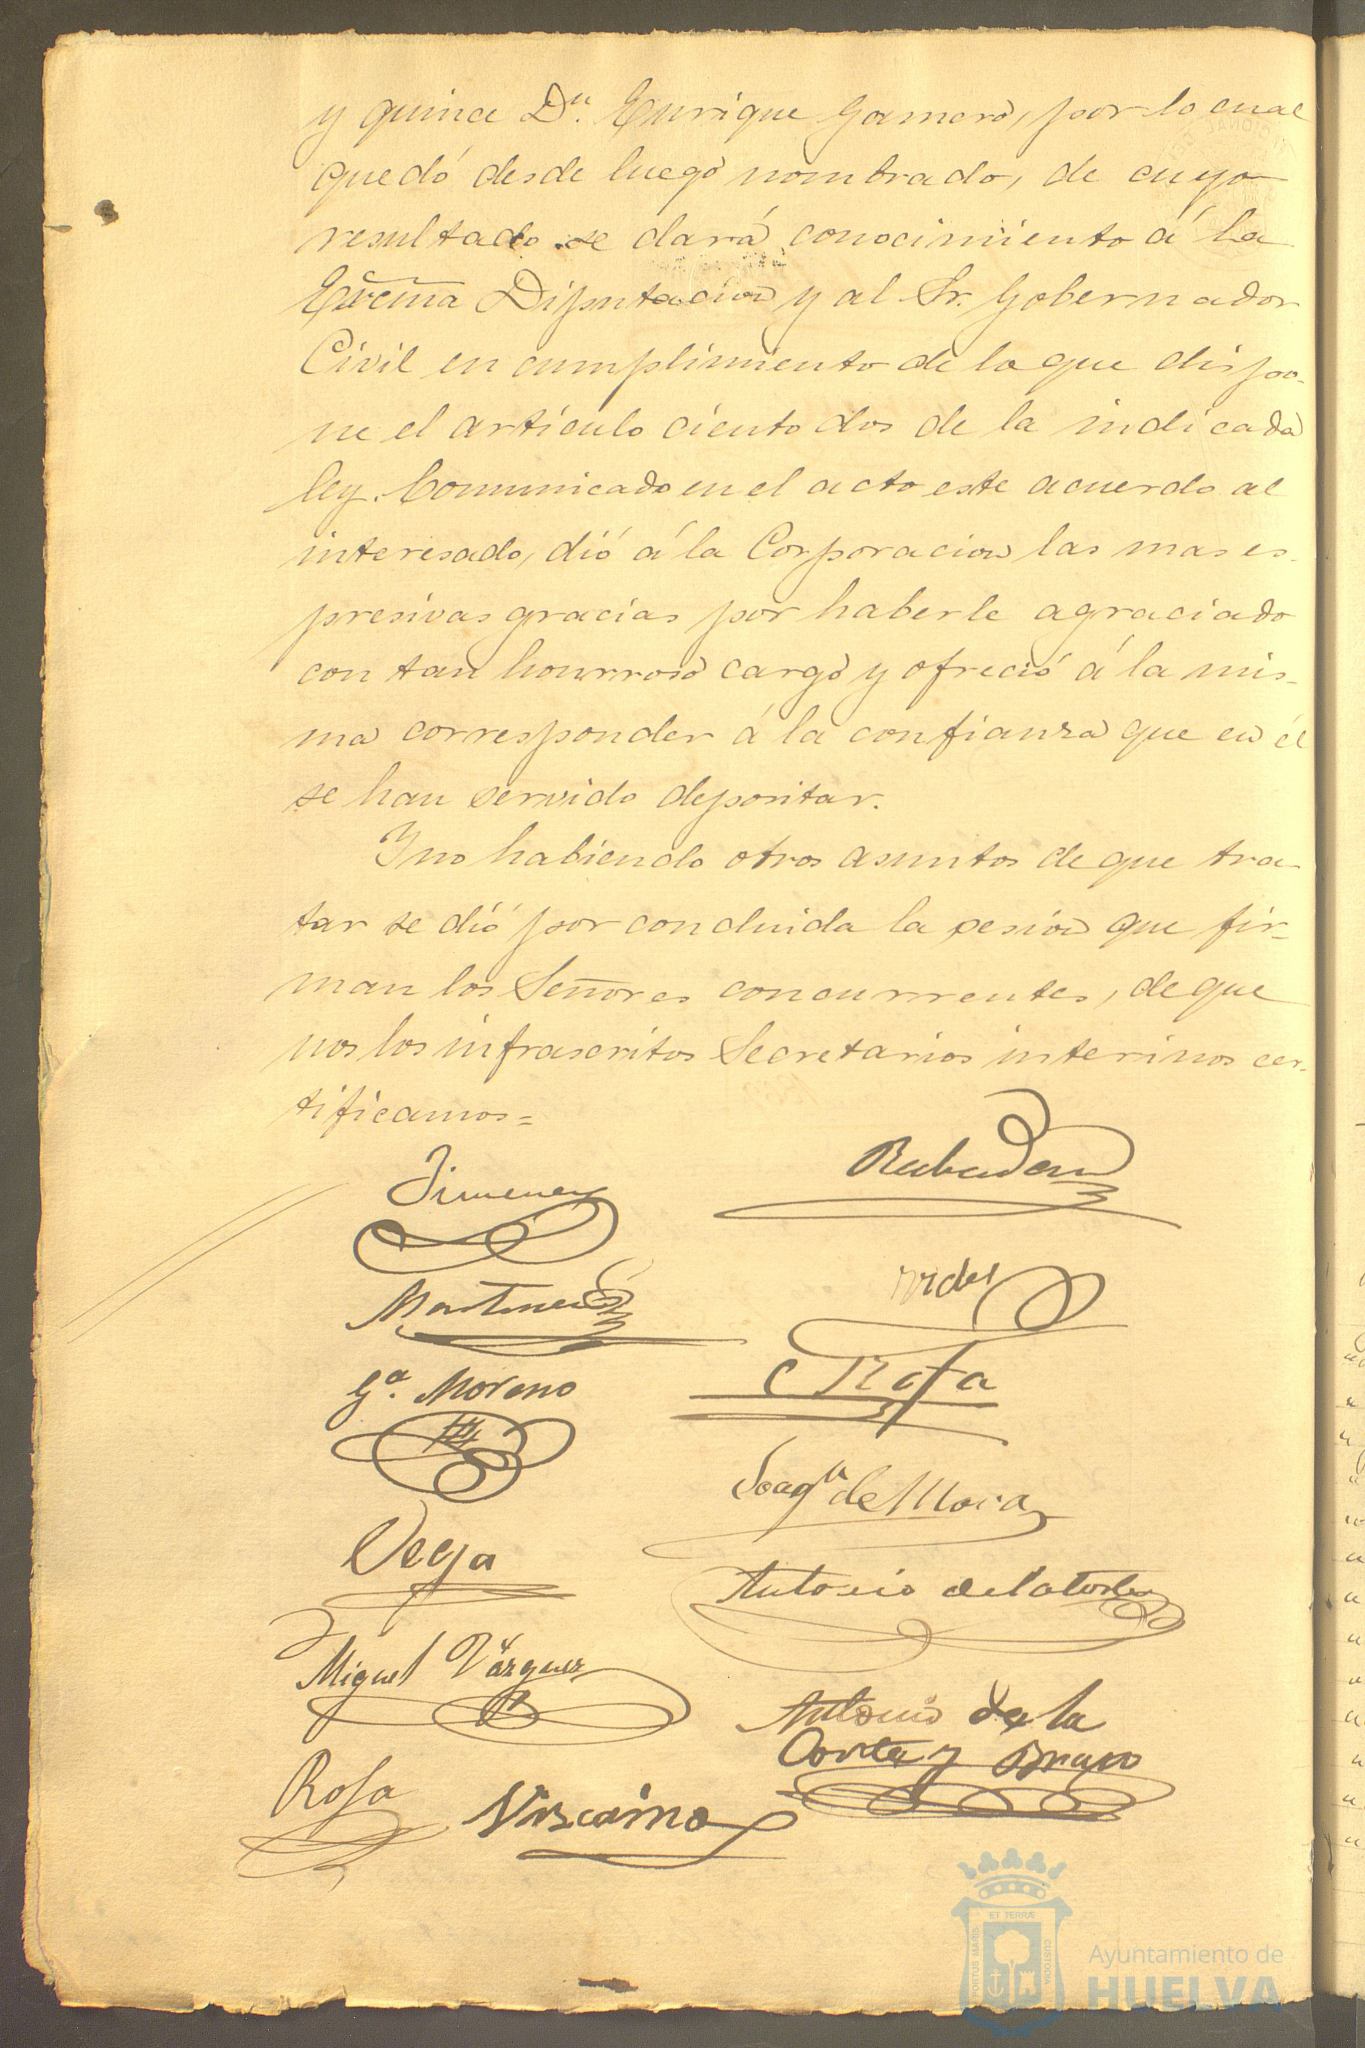 y quince Dn. Enrique Gamero, por lo cual
quedó desde luego nombrado, de cuyo
resultado se dará conocimiento á la
Excma Diputacion y al Sr. Gobernador
Civil en cumplimiento de lo que dispo-
ne el artículo ciento dos de la indicada
ley. Comunicado en el acto este acuerdo al
interesado, dió á la Corporacion las mas es-
presivas gracias por haberle agraciado
con tan honrroso cargo y ofreció á la mis-
ma corresponder á la confianza que en él
se han servido depositar.
Y no habiendo otros asuntos de que tra-
tar se dió por concluida la sesion que fir-
man los Señores concurrentes, de que
nos los infrascritos Secretarios interinos cer-
tificamos=
Jimenez
Rabadan
Martinez
Gª. Moreno
Joaqn de Mora
Vega
Antonio de la Torre
Miguel Vázquez
Antonio de la
Corte y Bravo
Rosa
Vizcaino
PORTUS MARIS
ET TERRÆ
CUSTODIA
Ayuntamiento de
HUELVA